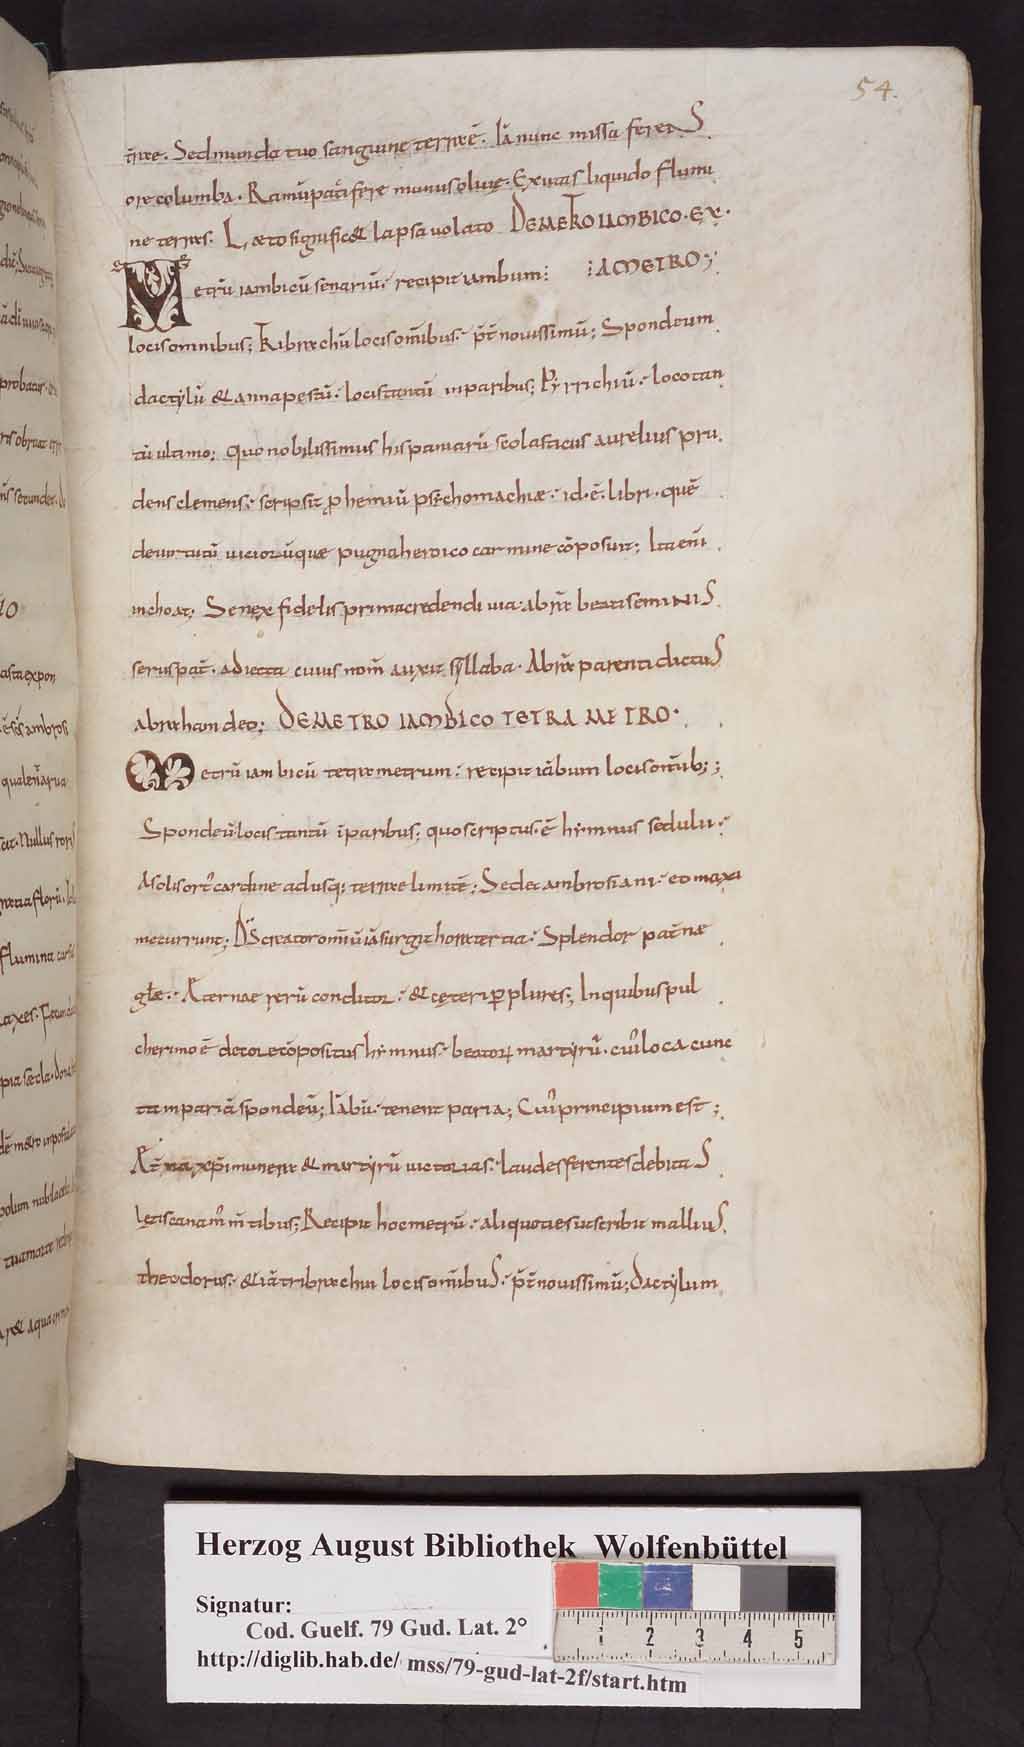 54.
t̄rae. Sed munda tuo sanguine terraē. Iā nunc missa ferens
ore columba. Ramū pacifere munus olivę. Exutas liquido flumi
ne terras. Laeto significet lapsa volato DE METRO IAMBICO. EX.
Metrū iambicū senariū. recipit iambum: AMETRO;
locis omnibus; Tribrachū locis om̄ibus. p̄t novissimū; Spondeum
dactylū & annapestū. locis tantū inparibus; Pyrrichiū. loco tan
tū ultimo; Quo nobilissimus hispaniarū scolasticus aurelius pru
dens clemens. scripsit prohemiū psychomachiae. id. ē. libri. quē
de virtutū viciorūque pugna heroico carmine cōposuit; Ita eni
inchoat; Senex fidelis prima credendi via. abrā beati seminis
serus pat̄. adiecta cuius nom̄ auxit syllaba. Abrā parenti dictus
abraham deo; DE METRO IAMBICO TETRAMETRO.
Metrū iambicū tetrametrum. recipit iābum locis om̄ib;;
Spondeū locis tantū īparibus; quo scriptus. ē hymnus sedulii.
A solis ort᾽ cardine adusq; terrae limitē; Sed et ambrosiani. eo maxi
me currunt; Ds creator om̄iū iā surgit hora tertia. Splendor pat̄nae
glae. Aeternae rerū conditor. & cęteri p̄plures; In quibus pul
cherimo ē decore cōpositus hymnus. beatorꝝ martyrū. cui᾽ loca cunc
ta imparia spondeū; Iābū. tenent paria; Cui᾽ principium est;
Aet̄na xp̄i munera & martyrū victorias. laudes ferentes debitas
lętis canam᾽ m̄tibus; Recipit hoc metrū. aliquoties ut scribit mallius
theodorus. & iā tribrachū locis om̄ibus. p̄t novissimū; dactylum
Herzog August Bibliothek Wolfenbüttel
Signatur:
Cod. Guelf. 79 Gud. Lat. 2°
http://diglib.hab.de/ mss/79-gud-lat-2f/start.htm
1 2 3 4 5